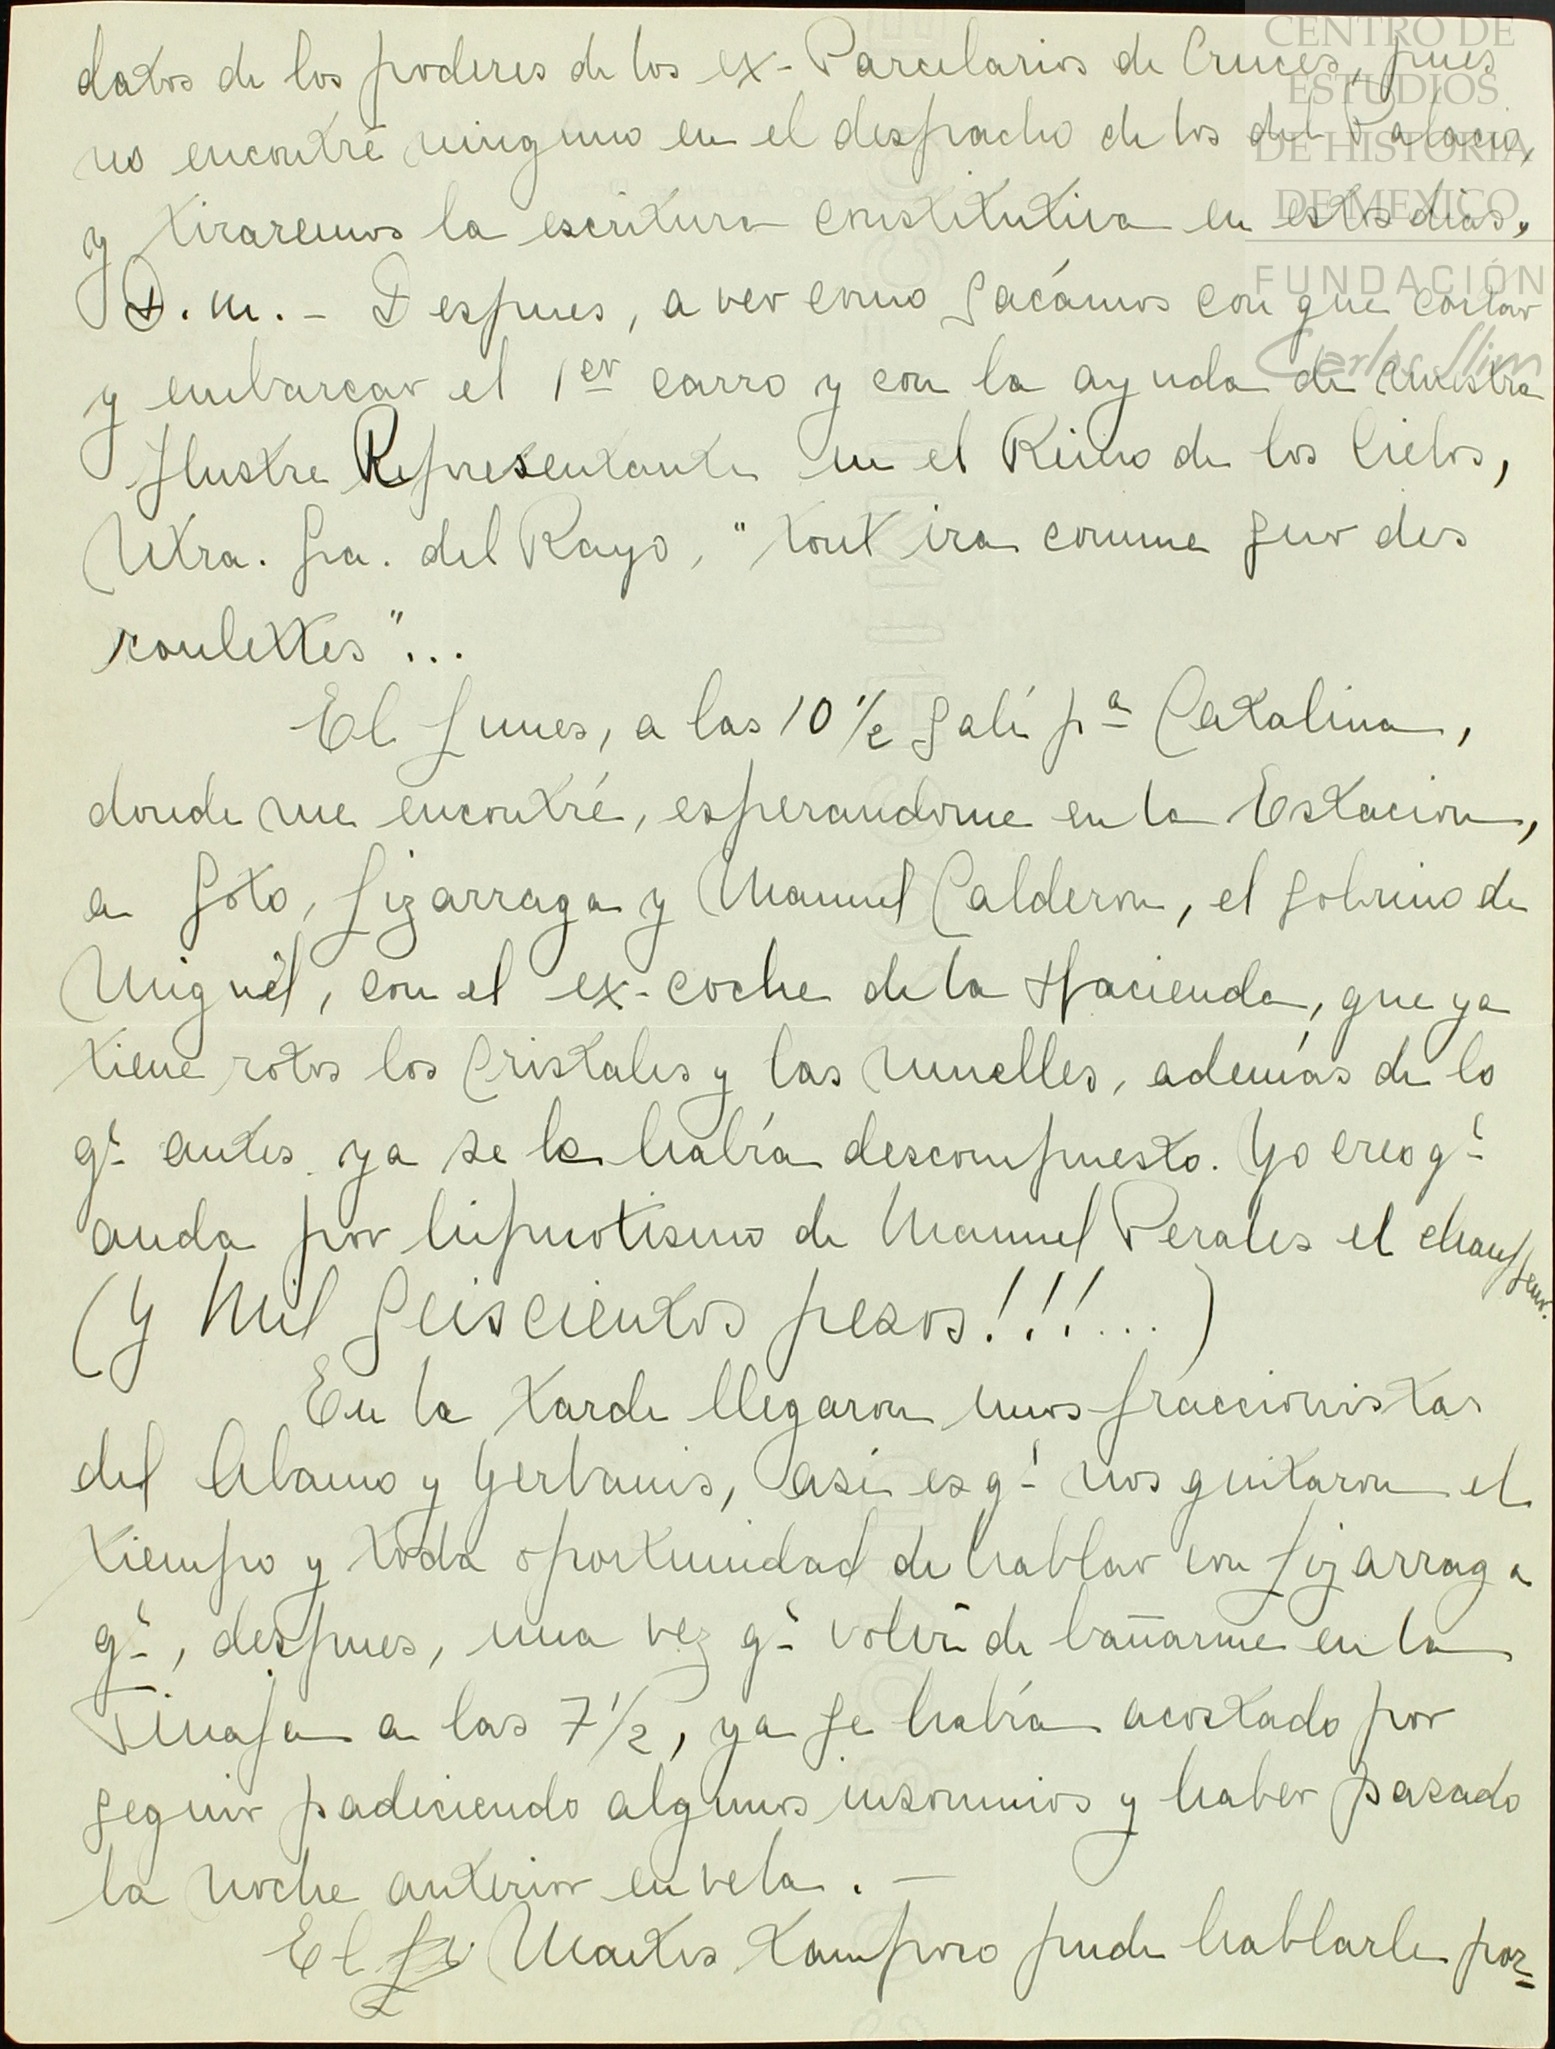 datos de los poderes de los ex-Parcelarios de Cruces, pues
no encontré ninguno en el despacho de los del Palacio,
y tiraremos la escritura constitutiva en estos dias,
D. m. - Despues, a ver como sacámos con que cortar
y embarcar el 1er carro y con la ayuda de Nuestra
Ilustre Representante en el Reino de los Cielos,
Ntra. Sra. del Rayo, "tout ira comme sur des
roulettes"...
El Lunes, a las 10 1/2 salí pa Catalina,
donde me encontré, esperandome en la Estacion,
a Soto, Lizarraga y Manuel Calderon, el sobrino de
Miguel, con el ex-coche de la Hacienda, que ya
tiene rotos los cristales y las muelles, además de lo
q' antes ya se le habría descompuesto. Yo creo q'
anda por hipnotismo de Manuel Perales el chauffeur.
(Y Mil Seiscientos pesos!!!...)
En la tarde llegaron unos fraccionistas
del Alamo y Yerbanis, así es q' nos quitaron el
tiempo y toda oportunidad de hablar con Lizarraga
q', despues, una vez q' volví de bañarme en la
Tinaja a las 7 1/2, ya se había acostado por
seguir padiciendo algunos insomnios y haber pasado
la noche anterior en vela. -
El Martes tampoco pude hablarle por=
CENTRO DE
ESTUDIOS
DE HISTORIA
DE MEXICO
FUNDACIÓN
Carlos Slim